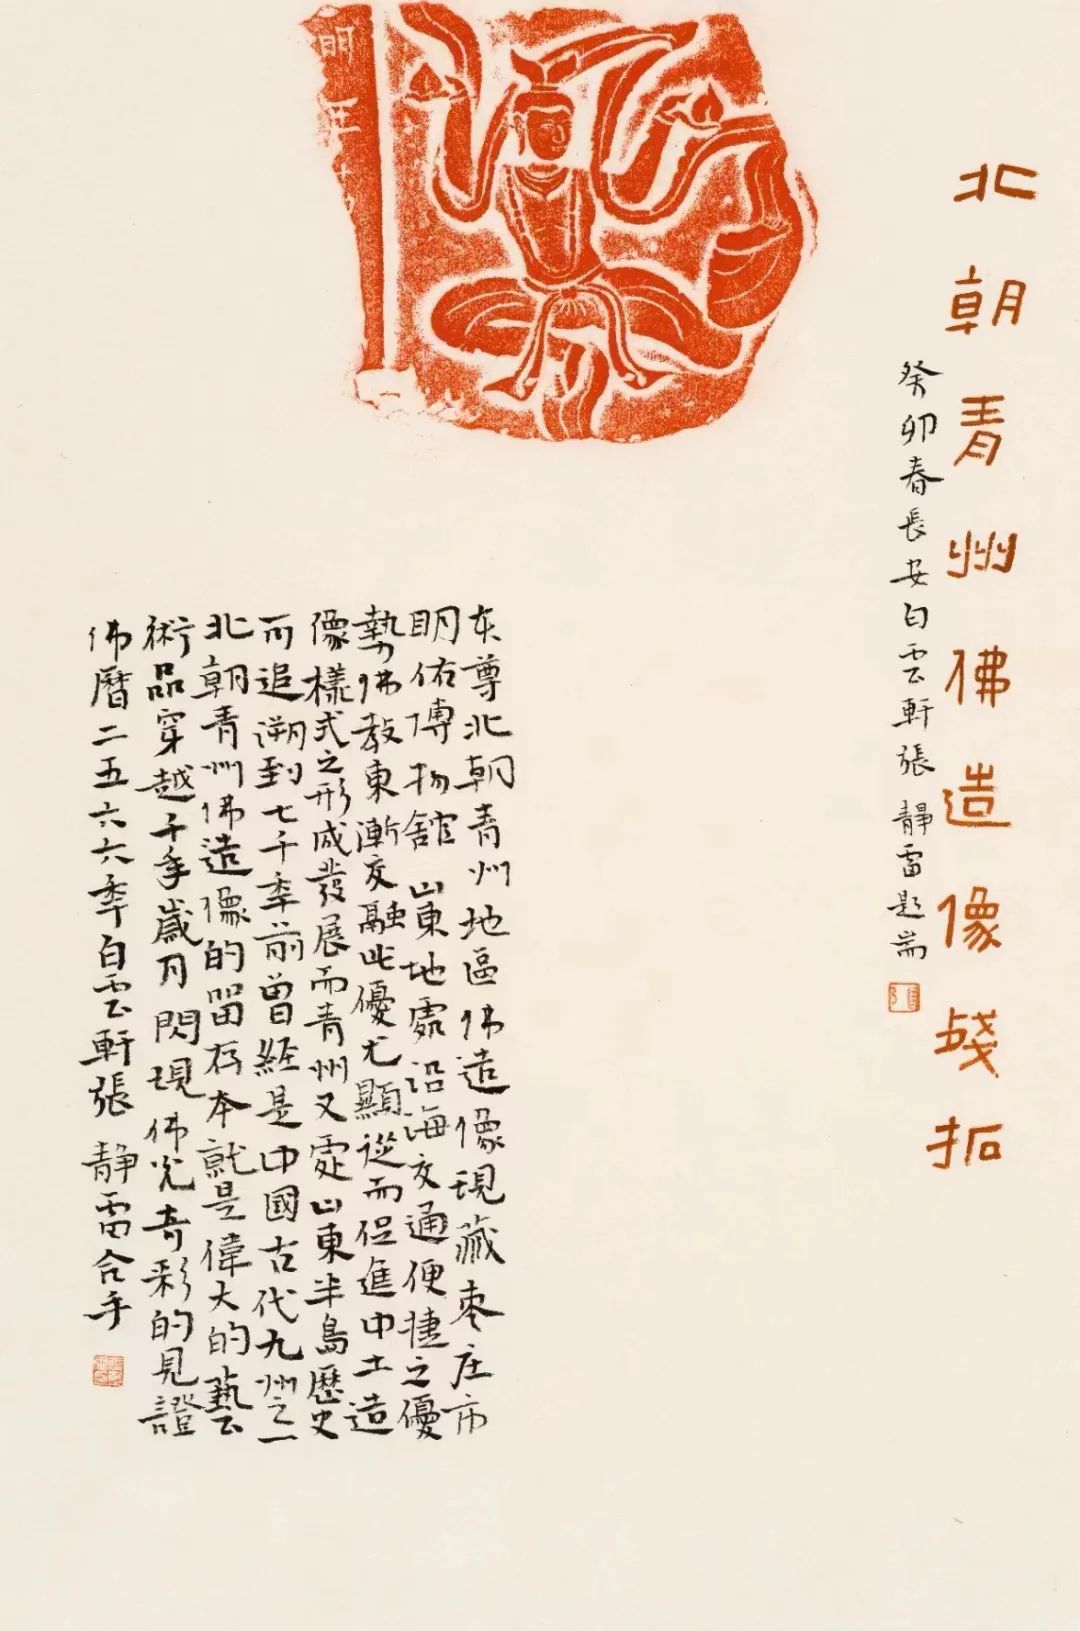 明年
北朝青州佛造像残拓
癸卯春長安白雲軒張靜雷題耑
尊北朝青州地區佛造像現藏枣庄市
明佑博物館山東地處沿海交通便捷之優
勢佛教東漸交融此優尤顯從而促進中土造
像樣式之形成發展而青州又處山東半島歷史
而追溯到七千年前曾經是中國古代九州之一
北朝青州佛造像的留存本就是偉大的藝
術品穿越千年歲月閃現佛光奇彩的見證
佛曆二五六六年白雲軒張靜雷合手